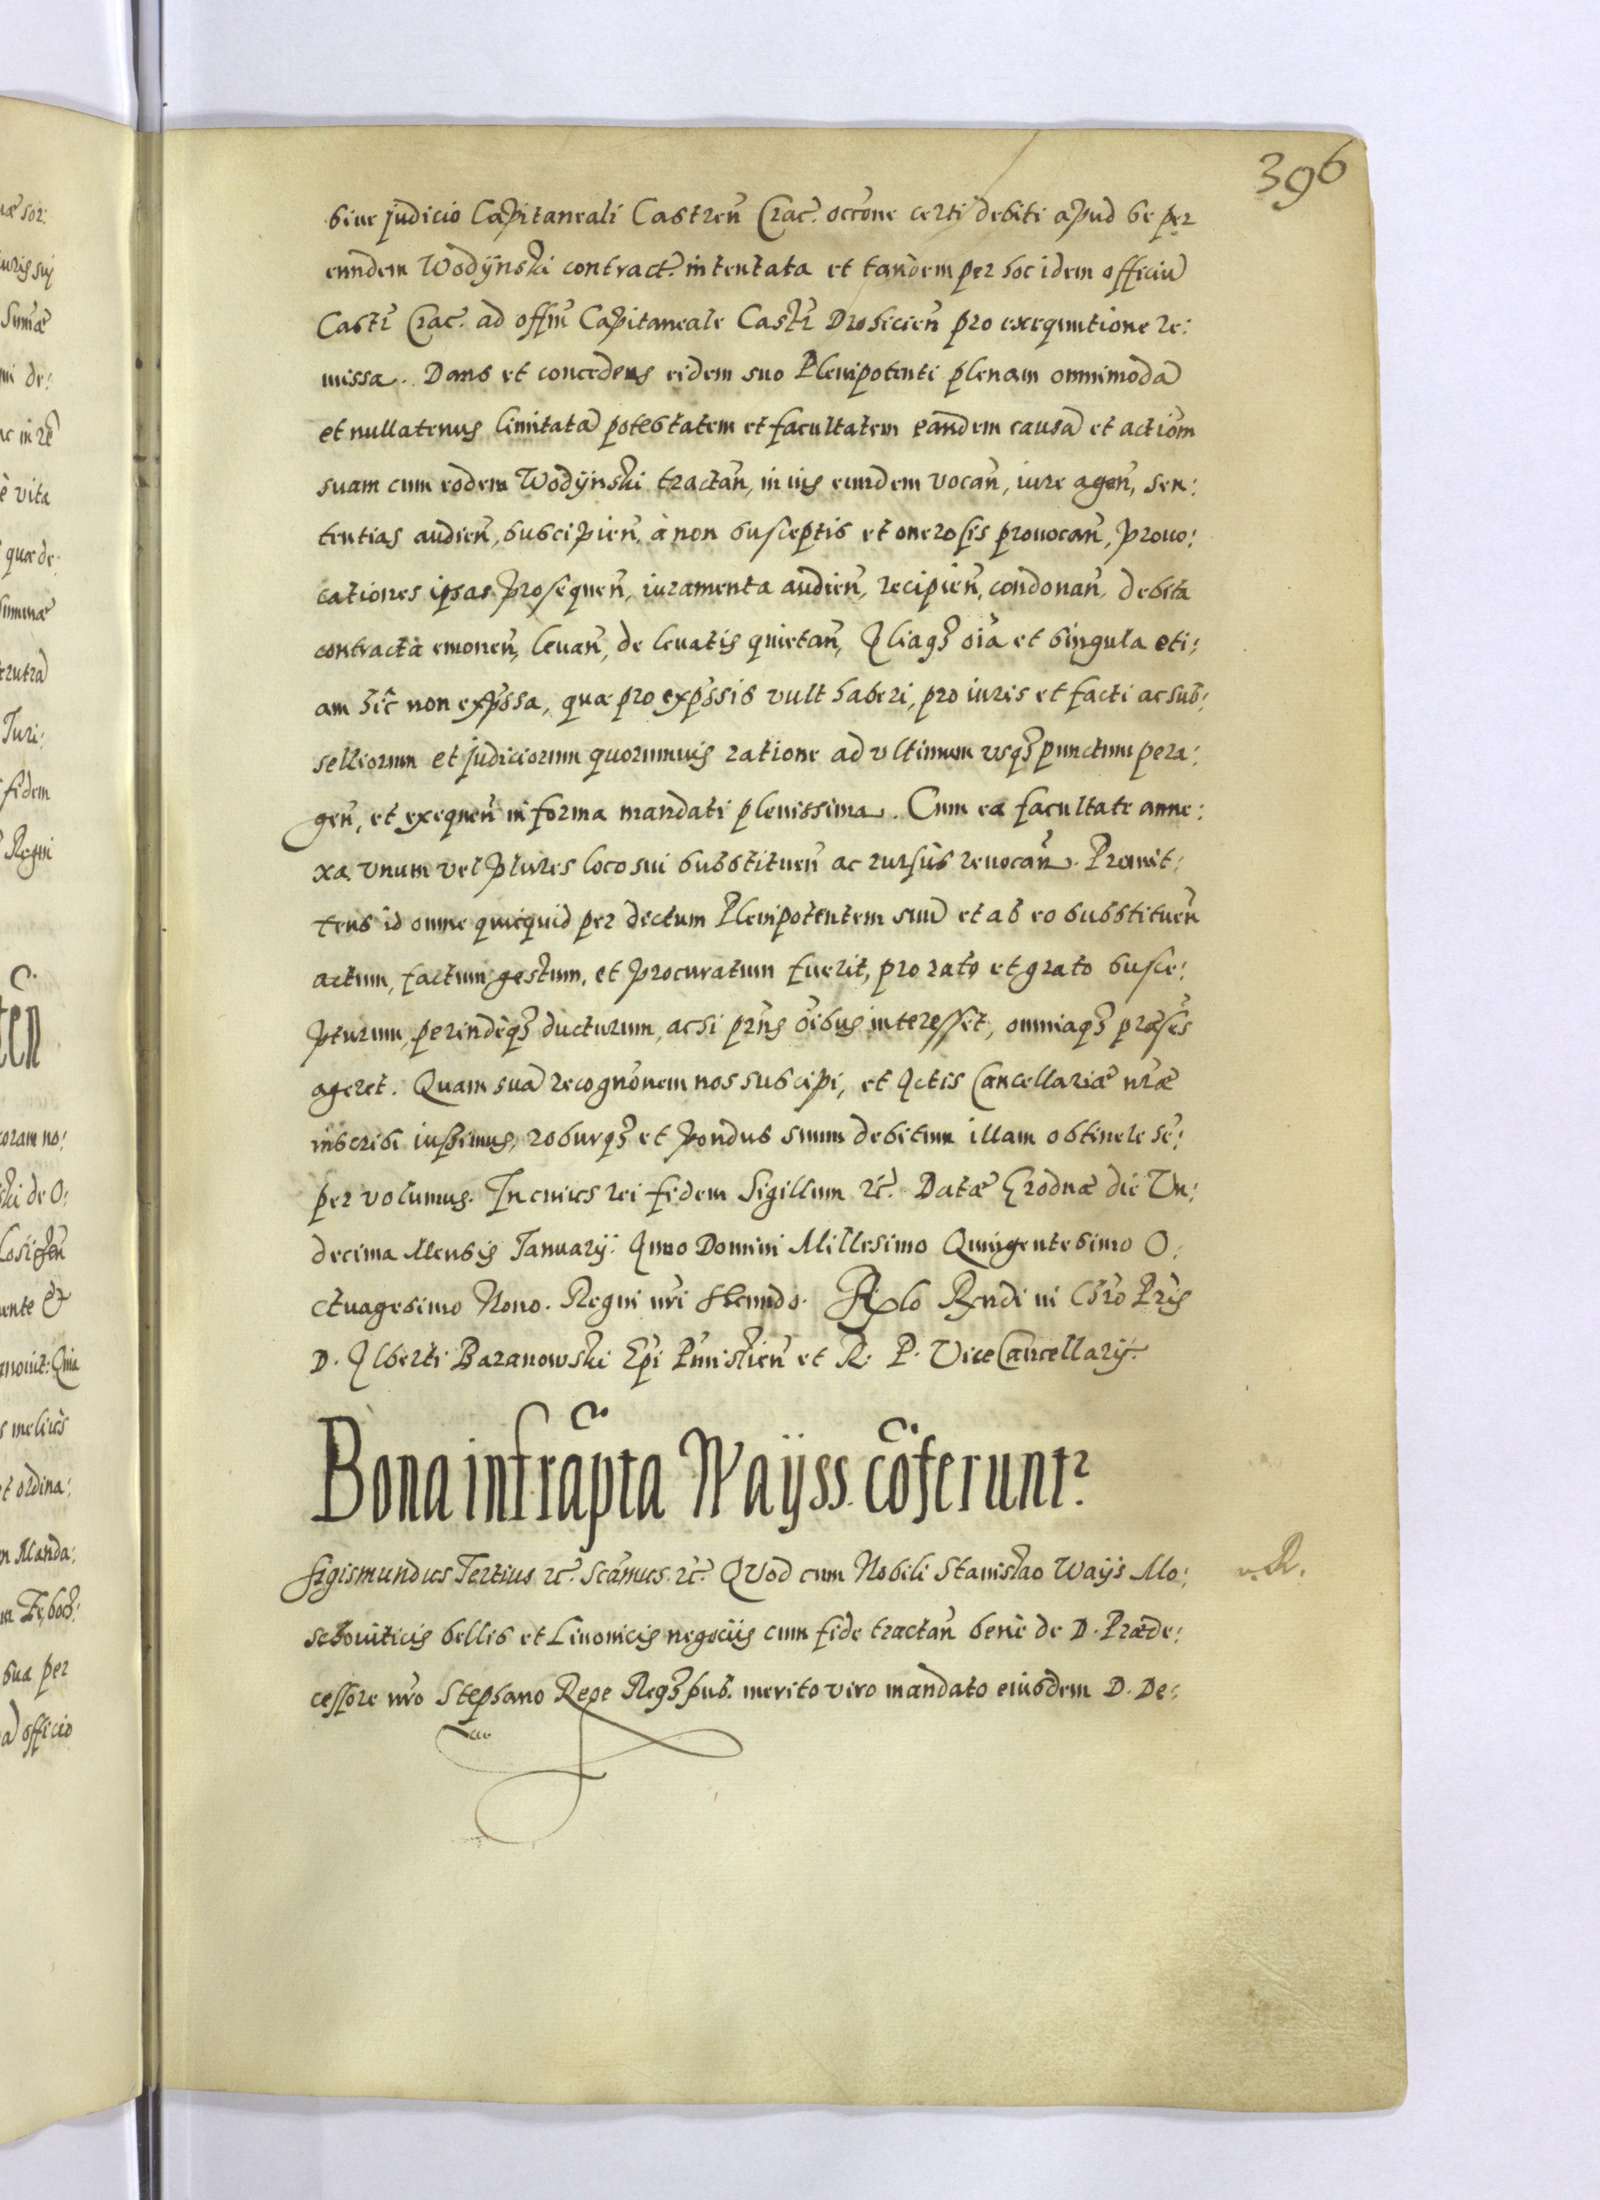 396
sive judicio Capitaneali Castren̄ Crac. occōne certi debiti apud se per
eundem Wodÿnski contract. intentata et tandem per hoc idem officiū
Castr̄ Crac. ad offm̄ Capitaneale Castr̄ Drohicien̄ pro exequutione re:
missa. Dans et concedens eidem suo Plenipotenti plenam omnimodā
et nullatenus limitatā potestatem et facultatem eandem causā et actiōm
suam cum eodem Wodÿnski tractan̄, in ius eundem vocan̄, iure agen̄, sen:
tentias audien̄, suscipien̄, à non susceptis et onerosis prouocan̄, prouo:
cationes ipsas prosequen̄, iuramenta audien̄, recipien̄, condonan̄, debita
contracta emonen̄, leuan̄, de leuatis quietan̄, Aliaq₃ oīa et singula eti:
am hîc non exp̄ssa, quæ pro exp̄ssis vult haberi, pro iuris et facti ac sub:
selliorum et judiciorum quorumuis ratione ad vltimum vsq₃ punctum pera:
gen̄, et exequen̄ in forma mandati plenissima. Cum ea facultate anne:
xa vnum vel plures loco sui substituen̄ ac rursùs reuocan̄. Promit:
tens id omne quicquid per dictum Plenipotentem suū et ab eo substituen̄
actum, factum gestum, et procuratum fuerit, pro rato et grato susce:
pturum, perindèq₃ ducturum, ac si prn̄s oībus interesset, omniaq₃ præsēs
ageret. Quam suā recognōnem nos suscipi, et Actis Cancellariæ nr̄æ
inscribi iussimus, roburq₃ et pondus suum debitum illam obtinere sē:
per volumus. In cuius rei fidem Sigillum rc̄. Datæ Grodnæ die Vn:
decima Mensis Januarÿ. Anno Domini Millesimo Quingentesimo O:
ctuagesimo Nono. Regni nr̄i Secundo. Rlo Rndi in Chr̄o Pr̄is
D. Alberti Baranowski Ep̄i Pr̄mislien̄ et R. P. ViceCancellarÿ.
Bona infrāpta Waÿss. cōferuntʳ
Sigismundus Tertius rc̄. Scāmus. rc̄. Quod cum Nobili Stanislao Waÿs Mo:
schouiticis bellis et Liuonicis negociis cum fide tractan̄ benè de D. Præde:
cessore nr̄o Stephano Rege Req₃ pub. merito viro mandato eiusdem D. De: